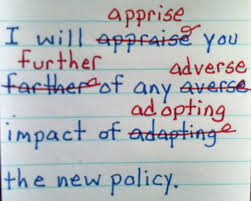 apprise
I will appraise you
further adverse
farther of any averse
adopting
impact of adapting
the new policy.